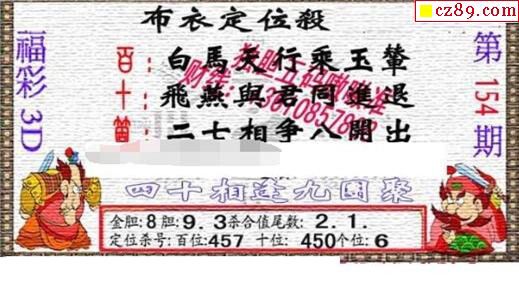 cz89.com
布衣定位殺
福彩3D
第154期
百:白馬灰行乘玉輦
十:飛燕與君同進退
箇:二七相争八開出
四十相逢九國聚
金胆:8胆:9.3杀合值尾数:2.1.
定位杀号:百位:457 十位:450个位:6